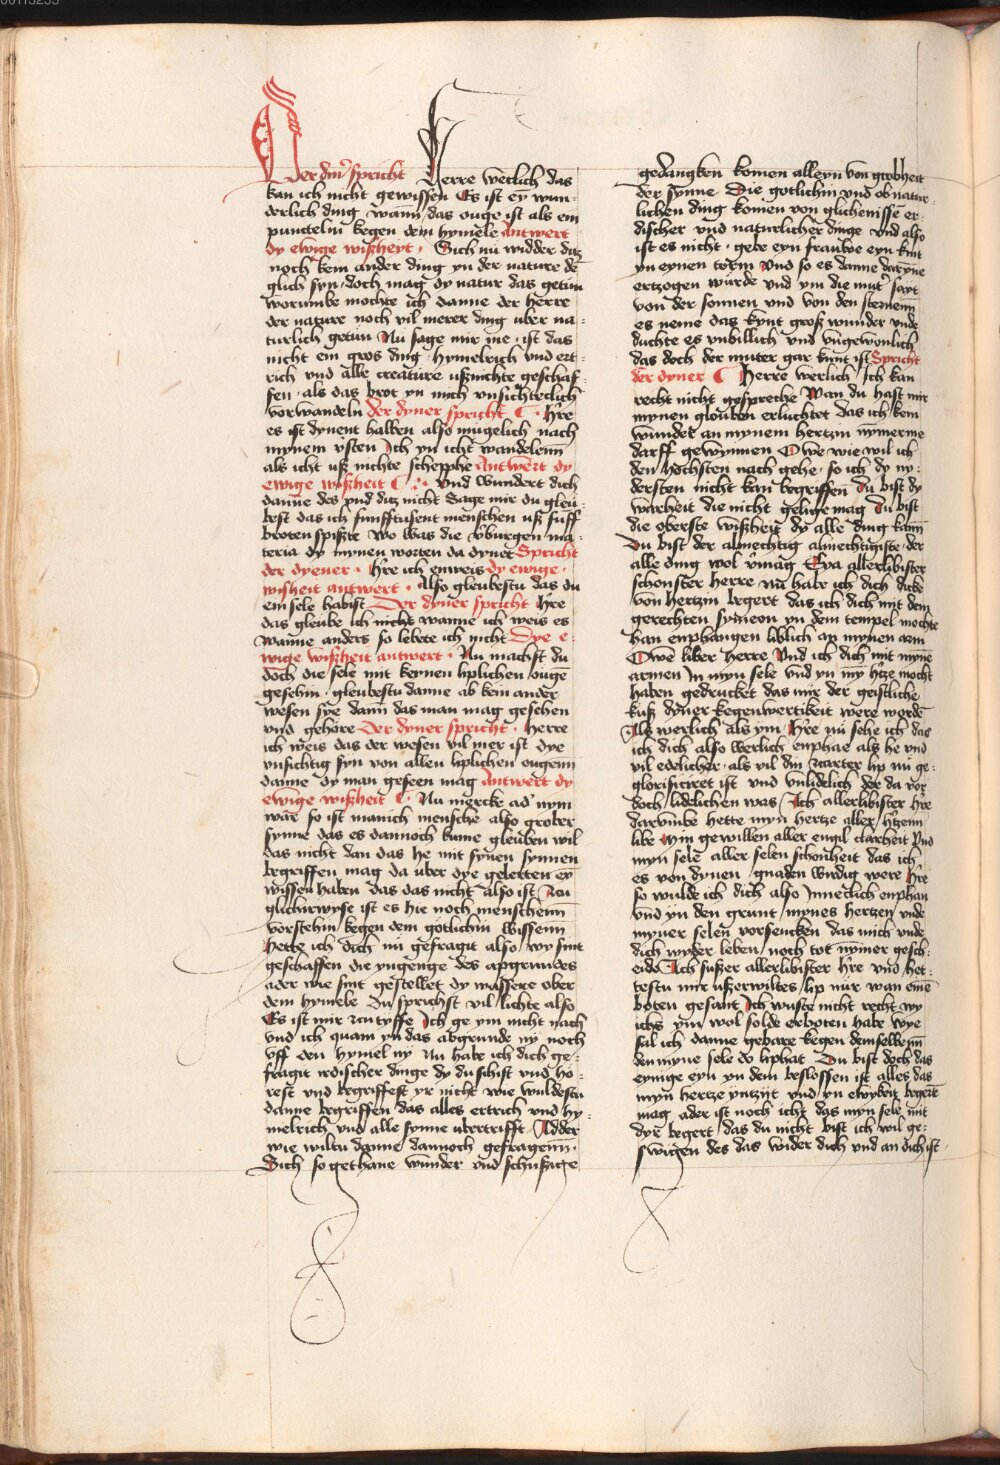 Der din̄ spricht Herre werlich das
kan ich nicht gewissen Es ist ey wun¬
derlich ding wann das ouge ist als ein
punctelin kegen dem hymele Antwert
dy ewige wißheyt · Sich nu widder ditz
noch kein ander ding yn der nature de
glich syn / doch mag dy natur das getun
worumbe mochte ich danne der herre
der nature noch vil merer ding uber na¬
turlich getun Nu sage mir me · ist das
nicht ein gros ding · hymelrich vnd ert¬
rich vnd alle creature ußnichte geschaf¬
fen · als das brot yn mich vnsichteclich
vorwandeln der dyner spricht · hr̄e
es ist dynent halben also mugelich nach
mynem vˢsten Ich yn icht wandelenn
als icht uß nichte schepphe Antwert dy
ewige wißheit · Vnd wundert dich
danne des vnd ditz nicht Sage mir du gleu¬
best das ich funfftusent menschen uß fuff
broten spißte Wo was die vˢburgen ma¬
teria dy mynen worten da dynet Spricht
der dyener · hr̄e ich enweis dy ewige ·
wisheit antwert · Also gleubestu das du
ein sele habist Der dyner spricht hr̄e
das gleube ich nicht wanne ich weis es
wanne anders so lebete ich nicht Dye e¬
wige wißheit antwert · Nu machst du
doch die sele mit keynen liplichen ougē
gesehin · gleubestu danne ab kein ander
wesen sye dann das man mag gesehen
vnd gehore Der dyner spricht · Herre
ich weis das der wesen vil mer ist dye
vnsichtig syn von allen liplichen ougenn
danne dy man geseen mag Antwert dy
ewige wißheit · Nu mercke ad' nym
war so ist manich mensche also grober
synne das es dannoch kume gleuben wil
das nicht dan das he mit synen synnen
begriffen mag da uber dye gelerten ey
wissen haben das das nicht also ist Zcu
glicherwyse ist es hie noch menschenn
vorstehin kegen dem gotlichin wissenn
Hette ich dich nu gefragit also wy sint
geschaffen die yngenge des apgrundes
ader wie sint gestellet dy wassere ober
dem hymele Du sprichst vil lichte also
Es ist mir zcu tyffe Ich ge ym nicht nach
vnd ich quam yn das abgrunde ny noch
vff den hymel ny Nu habe ich dich ge¬
fragit irdischer dinge dy du sihist vnd ho¬
rest vnd begriffest yr nicht wie wuldestu
danne begriffen das alles ertrich vnd hy¬
melrich vnd alle synne ubertrifft Adder
wie wiltu danne dannoch gefragenn ·
Sich so gethane wunder vnd schinsitze
gedangken komen alleyn von grobheit
der synne Die gotlichin vnd obnatur¬
lichen ding komen von glichenisse er¬
discher vnd naturlicher dinge vnd also
ist es nicht · gebe eyn frauwe eyn kint
yn eynen torm Vnd so es danne daryne
ertzogen wurde vnd ym die mutˢ sayt
von der sonnen vnd von den sternenn
es neme das kynt groß wunder vnde
duchte es vnbillich vnd vngewonlich
das doch der muter gar kunt ist Spricht
der dyner Herre werlich Ich kan
recht nicht gespreche Wan du hast mir
mynen glouben erluchtet das ich kein
wunder an mynem hertzin nymerme
darff gewynnen Owe wie wil ich
den hochsten nach gehe · so ich dy ny¬
dersten nicht kan begriffen Du bist dy
warheit die nicht gelige mag Du bist
die oberste wißheit dy alle ding kann
Du bist der almechtig almechtigiste · der
alle ding wol vˢmag Eya allerlibister
schonster herre nu habe ich dich dicke
von hertzin begert das ich dich mit dem
gerechten symeon yn dem tempel mochte
han enphangen liblich an mynen arm
Owe liber herre Vnd ich dich mit myne
armen In myn sele vnd yn my hˢtze mocht
haben gedrucket das mir der geistliche
kuß dyner kegenwertikeit were wordē
Als werlich als ym · Hr̄e nu sehe ich das
ich dich also werlich enphae als he vnd
vil edelicher · als vil din zcarter lip nu ge¬
glorificiret ist vnd vnlidelich der da vor
doch lidelichen was / Ach allerlibister hr̄e
darvmbe hette myn hertze aller hˢtzenn
libe Myn gewissen aller engil clarheit Vnd
myn sele aller selen schonheit das ich
es von dynen gnaden wirdig were hr̄e
so wulde ich dich also Innerlich enphan
vnd yn den grunt mynes hertzen vnde
myner selen vorsencken das mich vnde
dich wyder leben noch tot nymer gesch¬
eide Ach sußer allerlibister hr̄e vnd het¬
testu mir ußerwiltes / lip nur wan eine
boten gesant Ich wuste nicht recht wy
ichs ym wol solde erboten habe Wye
sal ich danne gebare kegen demselbenn
den myne sele do liphat Du bist doch das
eynige eyn yn dem beslossen ist alles das
myn hertze yntzijt vnd yn ewykeit begerē
mag ader ist noch icht das myn sele mit
dyr begert das du nicht bist ich wil ge¬
swigen des das wider dich vnd an dich ist ·